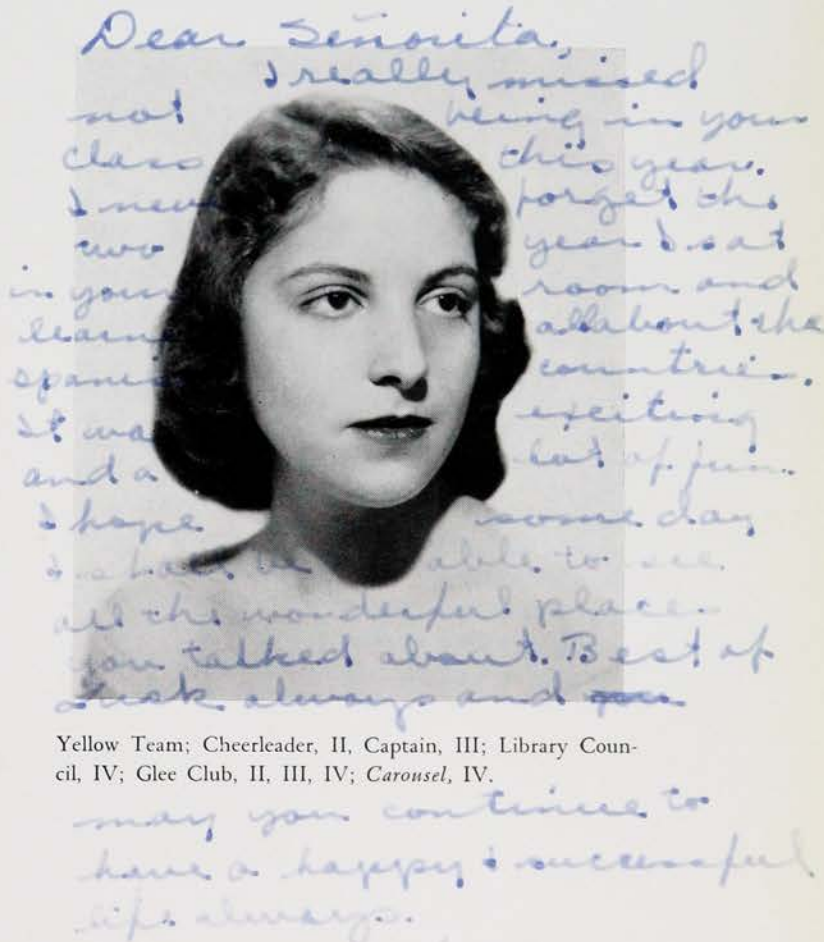 Dear Señorita,
I really missed
not being in your
class this year.
I never forget the
two year I sat
in your room and
learn all about the
spanis countries.
It was exciting
and a lot of fun.
I hope some day
I shall be able to see
all the wonderful places
you talked about. Best of
Luck always and
Yellow Team; Cheerleader, II, Captain, III; Library Coun-
cil, IV; Glee Club, II, III, IV; Carousel, IV.
may you continue to
have a happy & successful
life always.